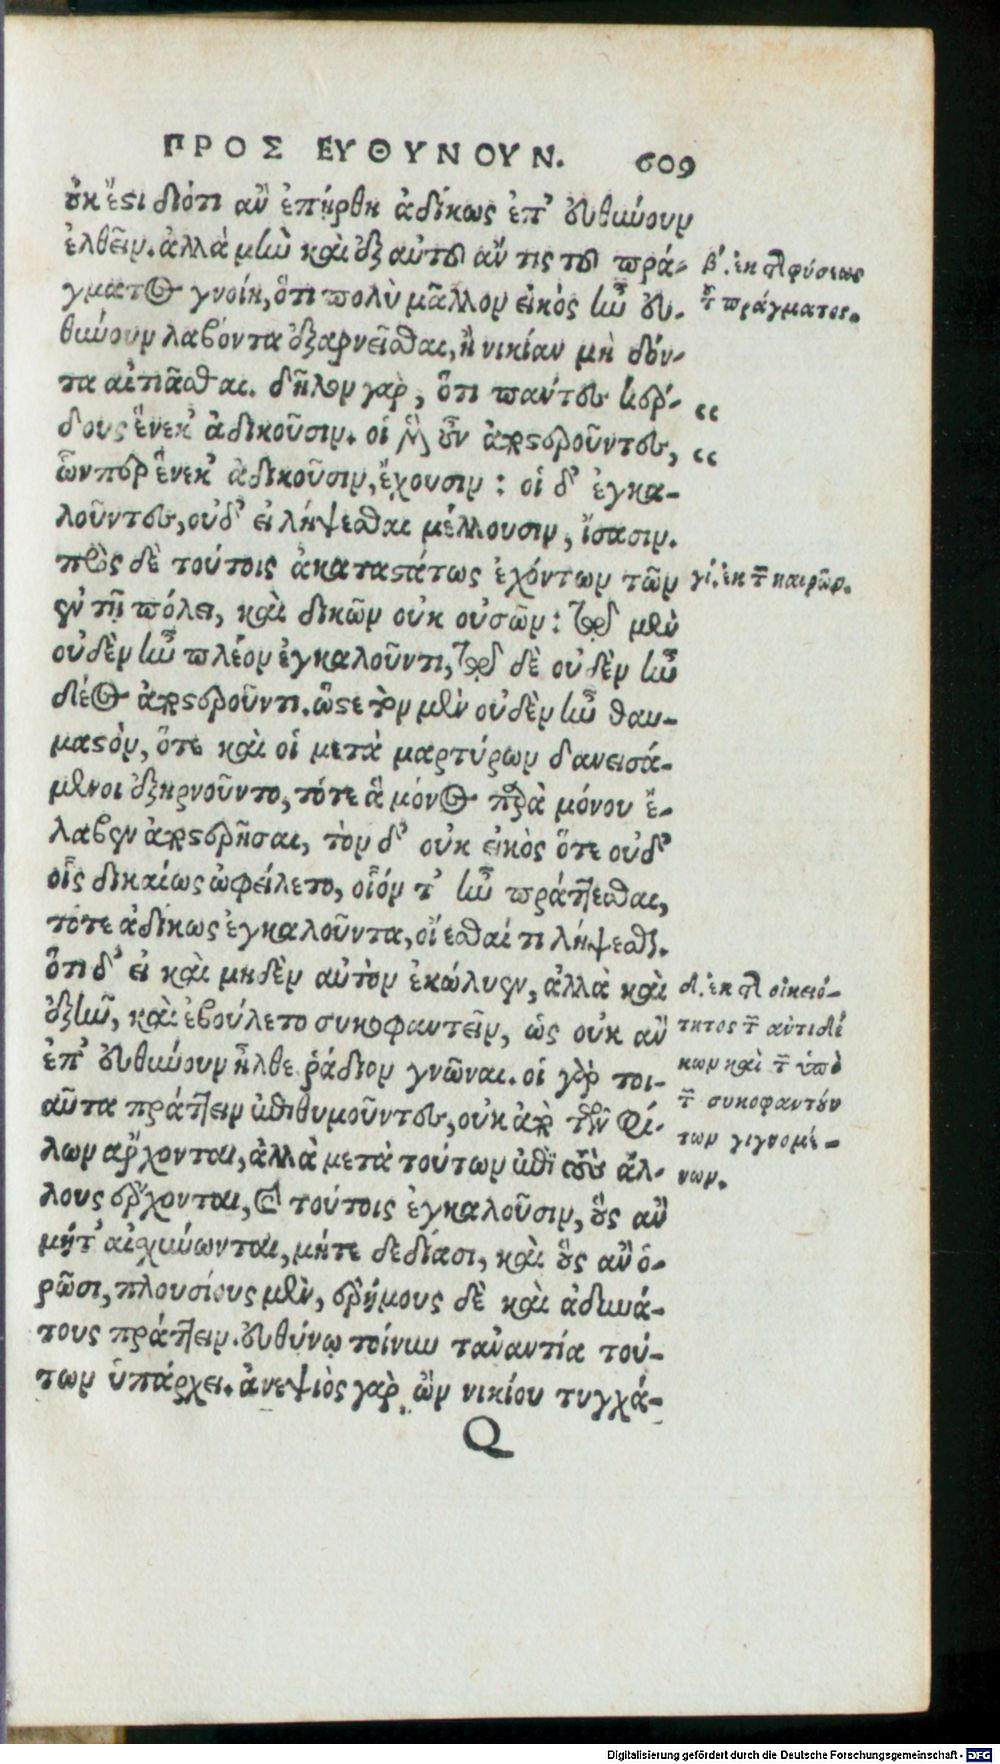 ΠΡΟΣ ΕΥΘΥΝΟΥΝ. 609
οὐκ ἔστι διότι ἂν ἐπήρθη ἀδίκως ἐπ' εὐθύνουν
ἐλθεῖν. ἀλλὰ μὴν καὶ ἐξ αὐτοῦ ἄν τις τοῦ πρά-
γματος γνοίη, ὅτι πολὺ μᾶλλον εἰκὸς ἦν εὐ-
θύνουν λαβόντα ἐξαρνεῖσθαι, ἢ νικίαν μὴ δόν-
τα αἰτιᾶσθαι. δῆλον γὰρ, ὅτι πάντες κέρ-
δους ἕνεκ' ἀδικοῦσιν. οἱ μὲν οὖν ἀποστεροῦντες,
ὧνπερ ἕνεκ' ἀδικοῦσιν, ἔχουσιν : οἱ δ' ἐγκα-
λοῦντες, οὐδ' εἰ λήψεσθαι μέλλουσιν, ἴσασιν.
πρὸς δὲ τούτοις ἀκαταστάτως ἐχόντων τῶν
ἐν τῇ πόλει, καὶ δικῶν οὐκ οὐσῶν : τῷ μὲν
οὐδὲν ἦν πλέον ἐγκαλοῦντι, τῷ δὲ οὐδὲν ἦν
δέος ἀποστεροῦντι. ὥστε τὸν μὲν οὐδὲν ἦν θαυ-
μαστὸν, ὅτε καὶ οἱ μετὰ μαρτύρων δανεισά-
μενοι ἐξηρνοῦντο, τότε ἃ μόνος παρὰ μόνου ἔ-
λαβεν ἀποστερῆσαι, τὸν δ' οὐκ εἰκὸς ὅτε οὐδ'
οἷς δικαίως ὠφείλετο, οἷόν τ' ἦν πράττεσθαι,
τότε ἀδίκως ἐγκαλοῦντα, οἴεσθαί τι λήψεσθαι.
ὅτι δ' εἰ καὶ μηδὲν αὐτὸν ἐκώλυεν, ἀλλὰ καὶ
ἐξῆν, καὶ ἐβούλετο συκοφαντεῖν, ὡς οὐκ ἂν
ἐπ' εὐθύνουν ἦλθε ῥάδιον γνῶναι. οἱ γὰρ τοι-
αῦτα πράττειν ἐπιθυμοῦντες, οὐκ ἀπὸ τῶν φί-
λων ἄρχονται, ἀλλὰ μετὰ τούτων ἐπὶ τοὺς ἄλ-
λους ἔρχονται, καὶ τούτοις ἐγκαλοῦσιν, οὓς ἂν
μήτ' αἰσχύνωνται, μήτε δεδίασι, καὶ οὓς ἂν ὁ-
ρῶσι, πλουσίους μὲν, ἐρήμους δὲ καὶ ἀδυνά-
τους πράττειν. εὐθύνῳ τοίνυν τἀναντία τού-
των ὑπάρχει. ἀνεψιὸς γὰρ ὢν νικίου τυγχά-
Q
β'. ἐκ τῆς φύσεως
τοῦ πράγματος.
“
“
γ'. ἐκ τῶν καιρῶν.
δ'. ἐκ τῆς οἰκειό-
τητος τῶν ἀντιδί
κων καὶ τῶν ὑπὸ
τῶν συκοφαντούν
των γιγνομέ-
νων.
Digitalisierung gefördert durch die Deutsche Forschungsgemeinschaft - DFG